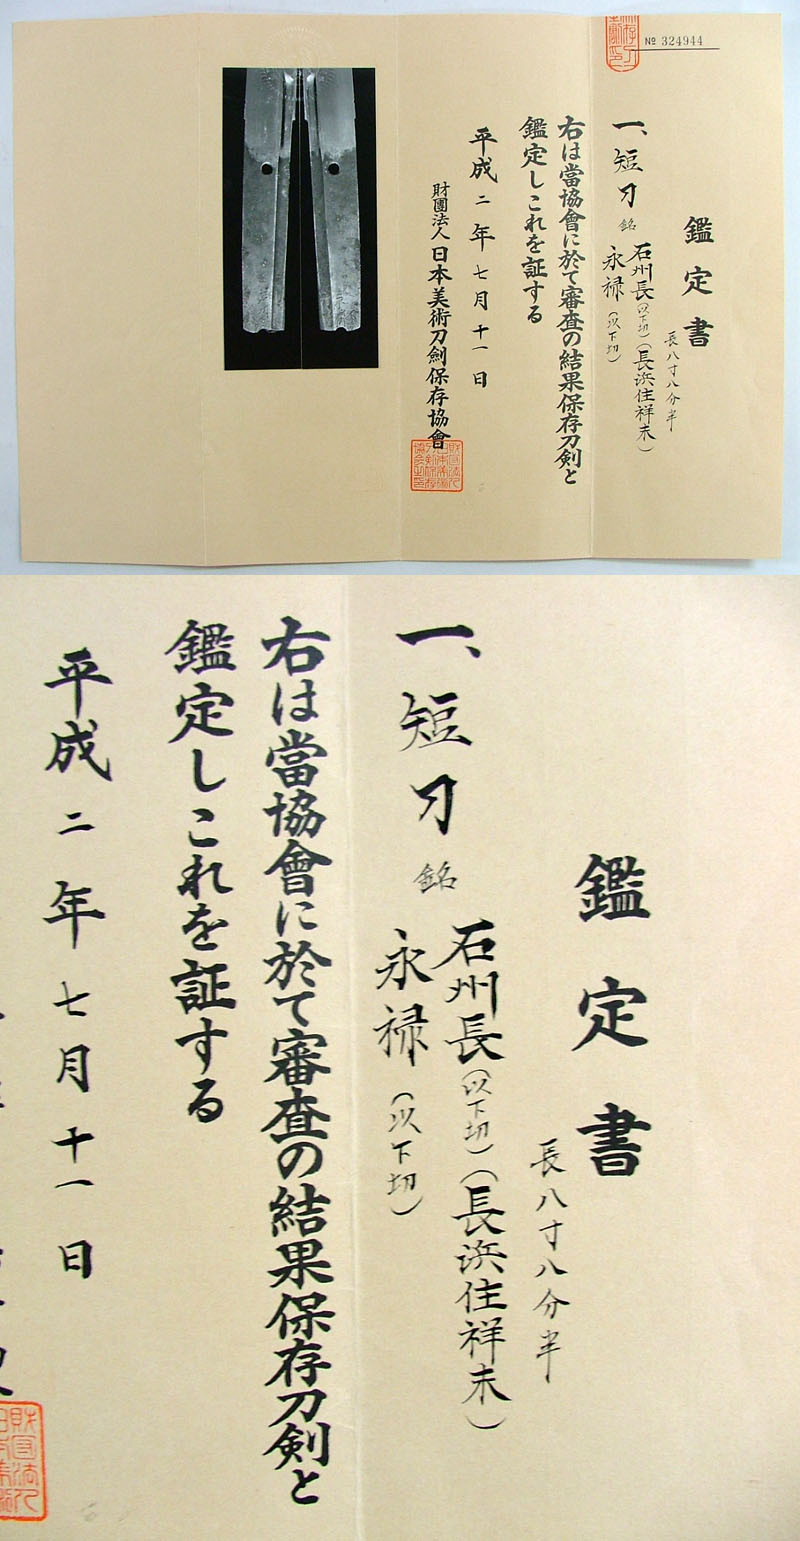 № 324944
鑑定書
長八寸八分半
一、短刀 銘 石州長(以下切)(長浜住祥末)
永禄(以下切)
右は當協會に於て審査の結果保存刀剣と
鑑定しこれを証する
平成二年七月十一日
財團法人日本美術刀劍保存協會
鑑定書
長八寸八分半
一、短刀 銘 石州長(以下切)(長浜住祥末)
永禄(以下切)
右は當協會に於て審査の結果保存刀剣と
鑑定しこれを証する
平成二年七月十一日